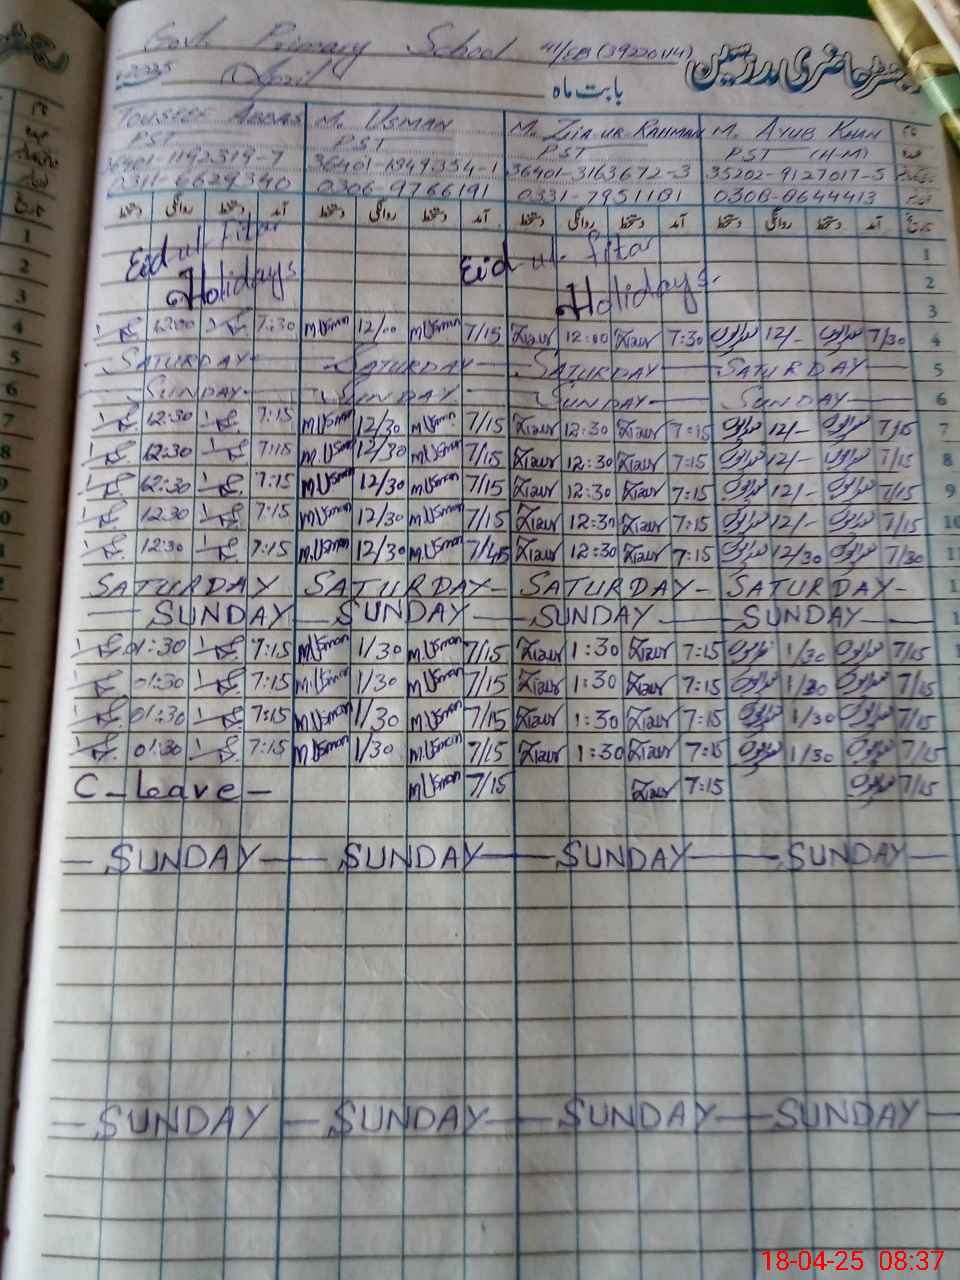 Govt. Primary School 41/GB (39220114) رجسٹر حاضری مدرسین
2025 April بابت ماہ
TOUSEEF ABBAS M. USMAN M. Zia ur RAHMAN M. AYUB KHAN
PST PST PST PST (H-M)
36401-1192319-7 36401-1949354-1 36401-3163672-3 35202-9127017-5
0311-6629340 0306-9766191 0331-7951181 0308-8644413
دستخط روانگی دستخط آمد دستخط روانگی دستخط آمد دستخط روانگی دستخط آمد دستخط روانگی دستخط آمد تاریخ
1 Eid ul fitar Eid ul fitar 1
2 Holidays Holidays. 2
3 3
4 12:00 7:30 M Usman 12/00 M Usman 7/15 Ziaur 12:00 Ziaur 7:30 12/- 7/30 4
5 SATURDAY SATURDAY SATURDAY SATURDAY 5
6 SUNDAY SUNDAY SUNDAY SUNDAY 6
7 12:30 7:15 M Usman 12/30 M Usman 7/15 Ziaur 12:30 Ziaur 7:15 12/- 7/15 7
8 12:30 7:15 M. Usman 12/30 M Usman 7/15 Ziaur 12:30 Ziaur 7:15 12/- 7/15 8
9 12:30 7:15 M Usman 12/30 M Usman 7/15 Ziaur 12:30 Ziaur 7:15 12/- 7/15 9
0 12:30 7:15 M Usman 12/30 M Usman 7/15 Ziaur 12:30 Ziaur 7:15 12/- 7/15 10
12:30 7:15 M. Usman 12/30 M Usman 7/15 Ziaur 12:30 Ziaur 7:15 12/30 7/30 11
SATURDAY SATURDAY- SATURDAY- SATURDAY-
SUNDAY SUNDAY SUNDAY SUNDAY
01:30 7:15 M Usman 1/30 M. Usman 7/15 Ziaur 1:30 Ziaur 7:15 1/30 7/15
01:30 7:15 M. Usman 1/30 M Usman 7/15 Ziaur 1:30 Ziaur 7:15 1/30 7/15
01:30 7:15 M Usman 1/30 M Usman 7/15 Ziaur 1:30 Ziaur 7:15 1/30 7/15
01:30 7:15 M Usman 1/30 M. Usman 7/15 Ziaur 1:30 Ziaur 7:15 1/30 7/15
C-Leave- M Usman 7/15 Ziaur 7:15 7/15
-SUNDAY- SUNDAY SUNDAY SUNDAY-
-SUNDAY -SUNDAY SUNDAY SUNDAY-
18-04-25 08:37